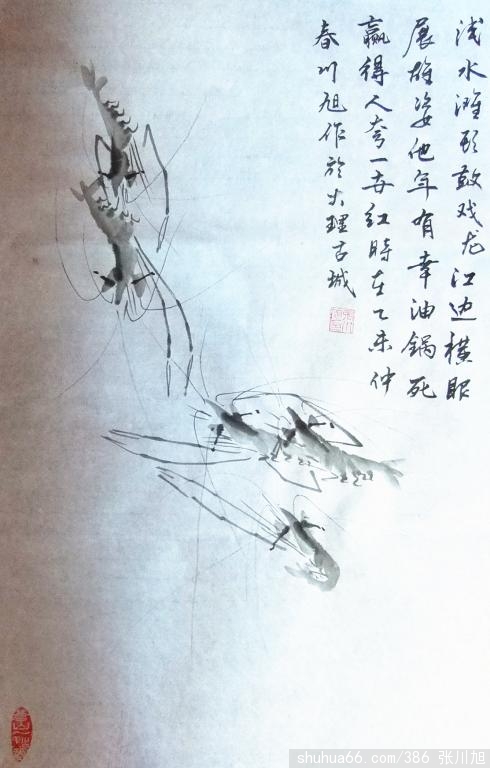 浅水滩头敢戏龙江边横眼
展雄姿他年有幸油锅死
赢得人夸一世红時在乙未仲
春川旭作於大理古城
shuhua66.com/386 张川旭